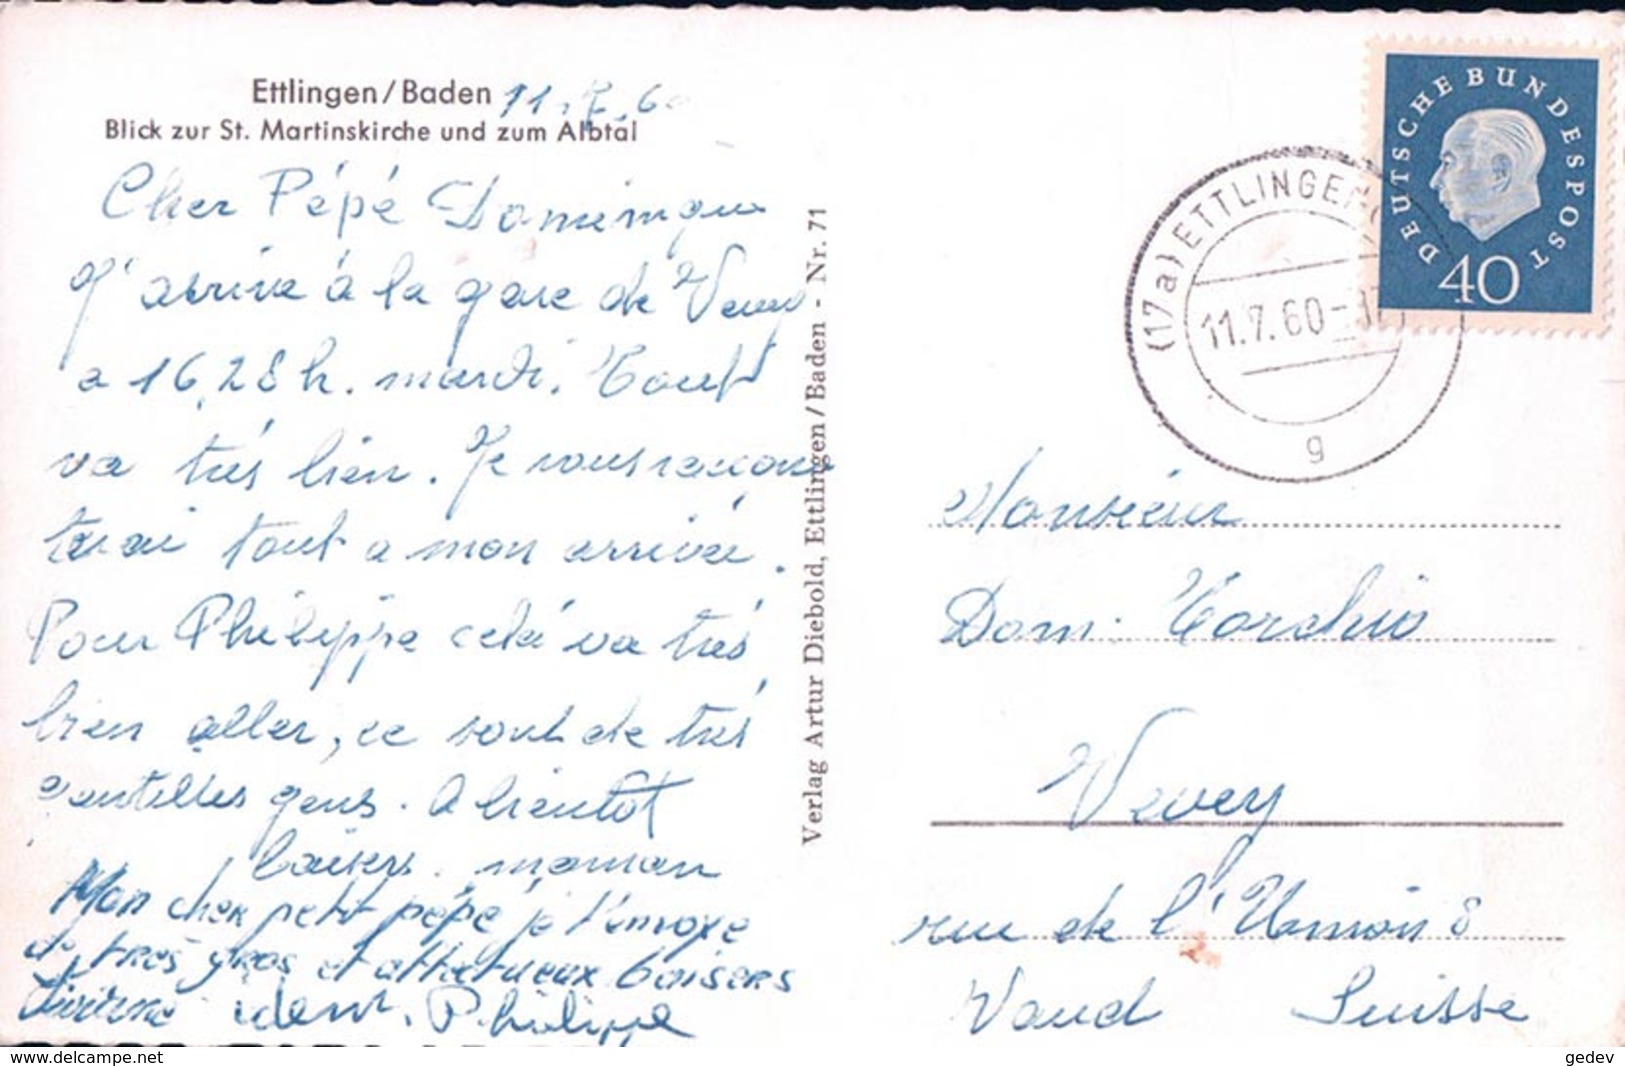 Ettlingen/Baden 11.7.60
Blick zur St. Martinskirche und zum Albtal
Cher Pépé Dominique
J'arrive à la gare de Vevey
a 16,28 h. mardi. Tout
va trés bien. Je vous racon
terai tout a mon arrivée.
Pour Philippe celà va trés
bien aller, ce sont de trés
gentilles gens. A bientot
baisers. maman
Mon cher petit pépé je t'envoye
de très gros et affectueux baisers
idem. Philippe
Verlag Artur Diebold, Ettlingen/Baden - Nr. 71
DEUTSCHE BUNDESPOST
40
(17a) ETTLINGEN
11.7.60
g
Monsieur
Dom. Torchio
Vevey
rue de l'Union 8
Vaud Suisse
www.delcampe.net
gedev